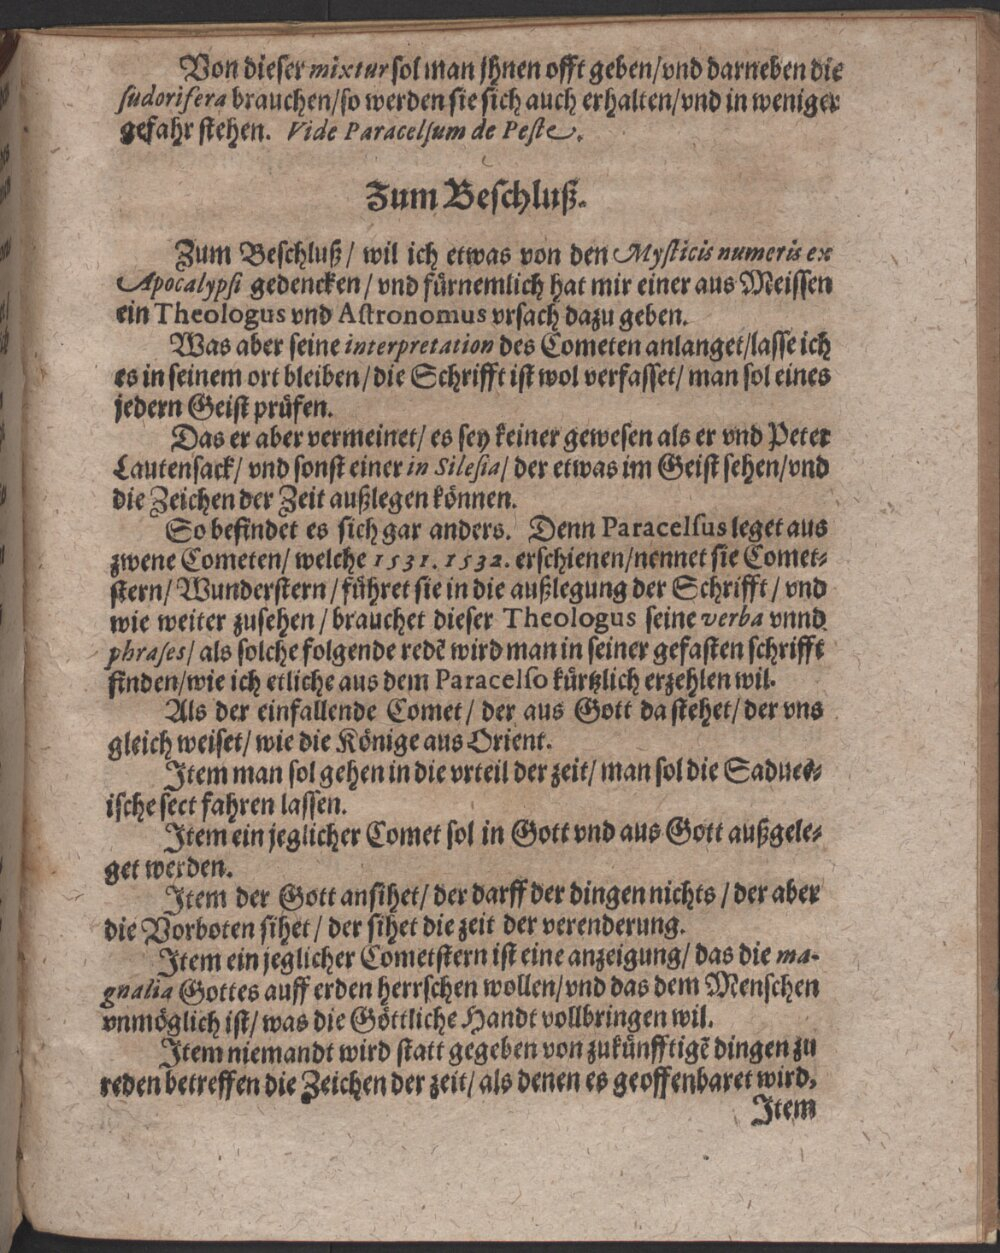 Von dieser mixtur sol man jhnen offt geben/vnd darneben die
sudorifera brauchen/so werden sie sich auch erhalten/vnd in weniger
gefahr stehen. Vide Paracelsum de Peste.
Zum Beschluß.
Zum Beschluß/ wil ich etwas von den Mysticis numeris ex
Apocalypsi gedencken/ vnd fürnemlich hat mir einer aus Meissen
ein Theologus vnd Astronomus vrsach dazu geben.
Was aber seine interpretation des Cometen anlanget/lasse ich
es in seinem ort bleiben/die Schrifft ist wol verfasset/ man sol eines
jedern Geist prüfen.
Das er aber vermeinet/ es sey keiner gewesen als er vnd Peter
Lautensack/ vnd sonst einer in Silesia/ der etwas im Geist sehen/vnd
die Zeichen der Zeit außlegen können.
So befindet es sich gar anders. Denn Paracelsus leget aus
zwene Cometen/ welche 1531. 1532. erschienen/nennet sie Comet-
stern/ Wunderstern/führet sie in die außlegung der Schrifft/ vnd
wie weiter zusehen/ brauchet dieser Theologus seine verba vnnd
phrases/ als solche folgende redē wird man in seiner gefasten schrifft
finden/wie ich etliche aus dem Paracelso kürtzlich erzehlen wil.
Als der einfallende Comet/ der aus Gott da stehet/ der vns
gleich weiset/ wie die Könige aus Orient.
Item man sol gehen in die vrteil der zeit/ man sol die Saduce-
ische sect fahren lassen.
Item ein jeglicher Comet sol in Gott vnd aus Gott außgele-
get werden.
Item der Gott ansihet/ der darff der dingen nichts/ der aber
die Vorboten sihet/ der sihet die zeit der verenderung.
Item ein jeglicher Cometstern ist eine anzeigung/ das die ma-
gnalia Gottes auff erden herrschen wollen/vnd das dem Menschen
vnmöglich ist/ was die Göttliche Handt vollbringen wil.
Item niemandt wird statt gegeben von zukünfftigē dingen zu
reden betreffen die Zeichen der zeit/ als denen es geoffenbaret wird,
Item